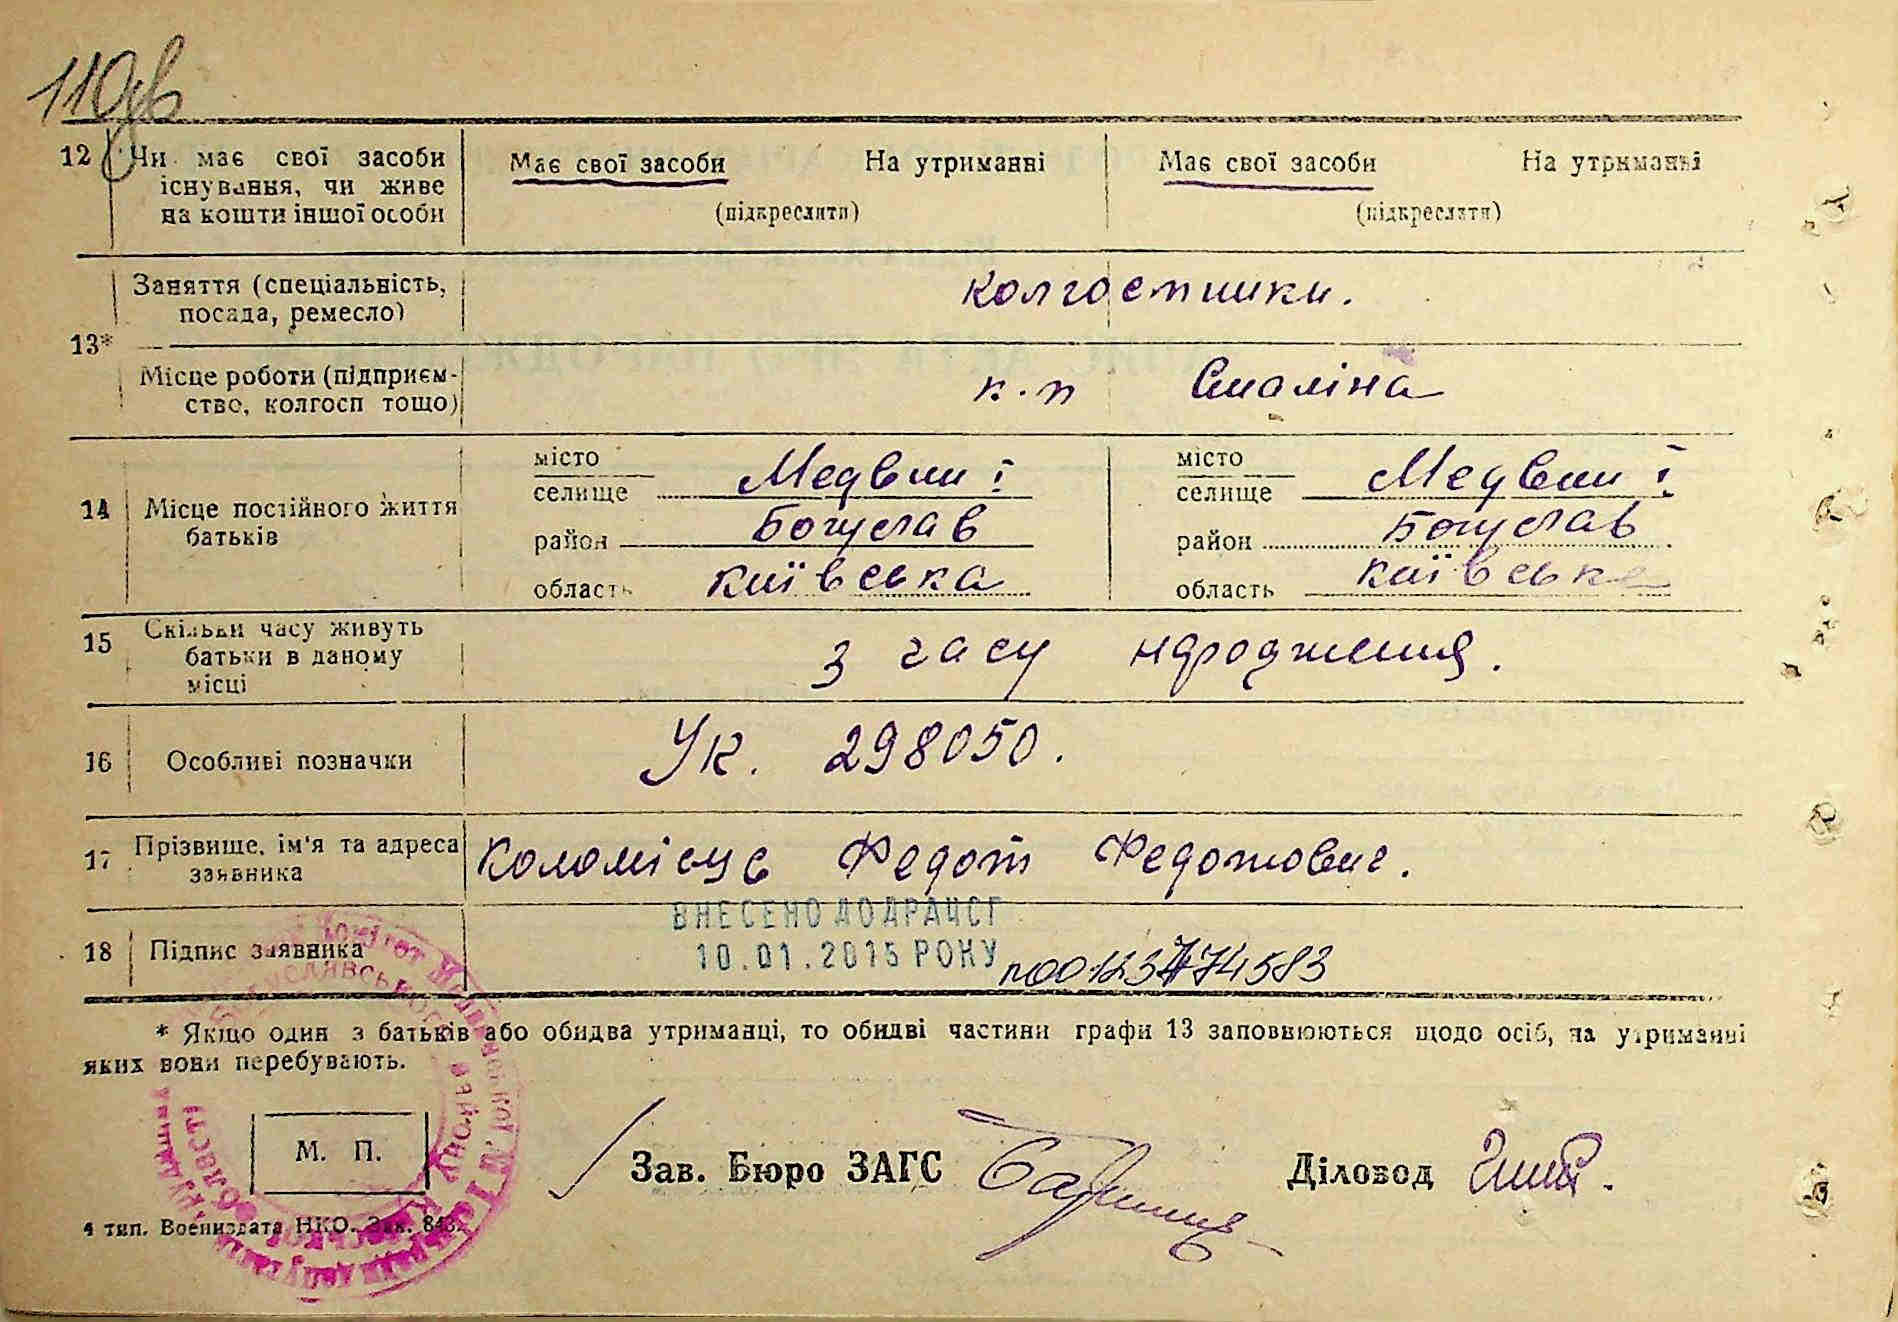 110 зв
12 Чи має свої засоби існування, чи живе на кошти іншої особи
Має свої засоби На утриманні Має свої засоби На утриманні
(підкреслити) (підкреслити)
13* Заняття (спеціальність, посада, ремесло)
колгоспники.
Місце роботи (підприємство, колгосп тощо)
к. п Сталіна
14 Місце постійного життя батьків
місто
селище Медвин
район Богуслав
область Київська
місто
селище Медвин
район Богуслав
область Київська
15 Скільки часу живуть батьки в даному місці
з часу народження.
16 Особливі позначки
УК. 298050.
17 Прізвище, ім'я та адреса заявника
Коломієць Федот Федотович.
ВНЕСЕНО ДО ДРАЦСГ
10.01.2015 РОКУ
18 Підпис заявника
* Якщо один з батьків або обидва утриманці, то обидві частини графи 13 заповнюються щодо осіб, на утриманні
яких вони перебувають.
М. П.
Зав. Бюро ЗАГС Діловод
4 тип. Воениздата НКО. Зак. 843